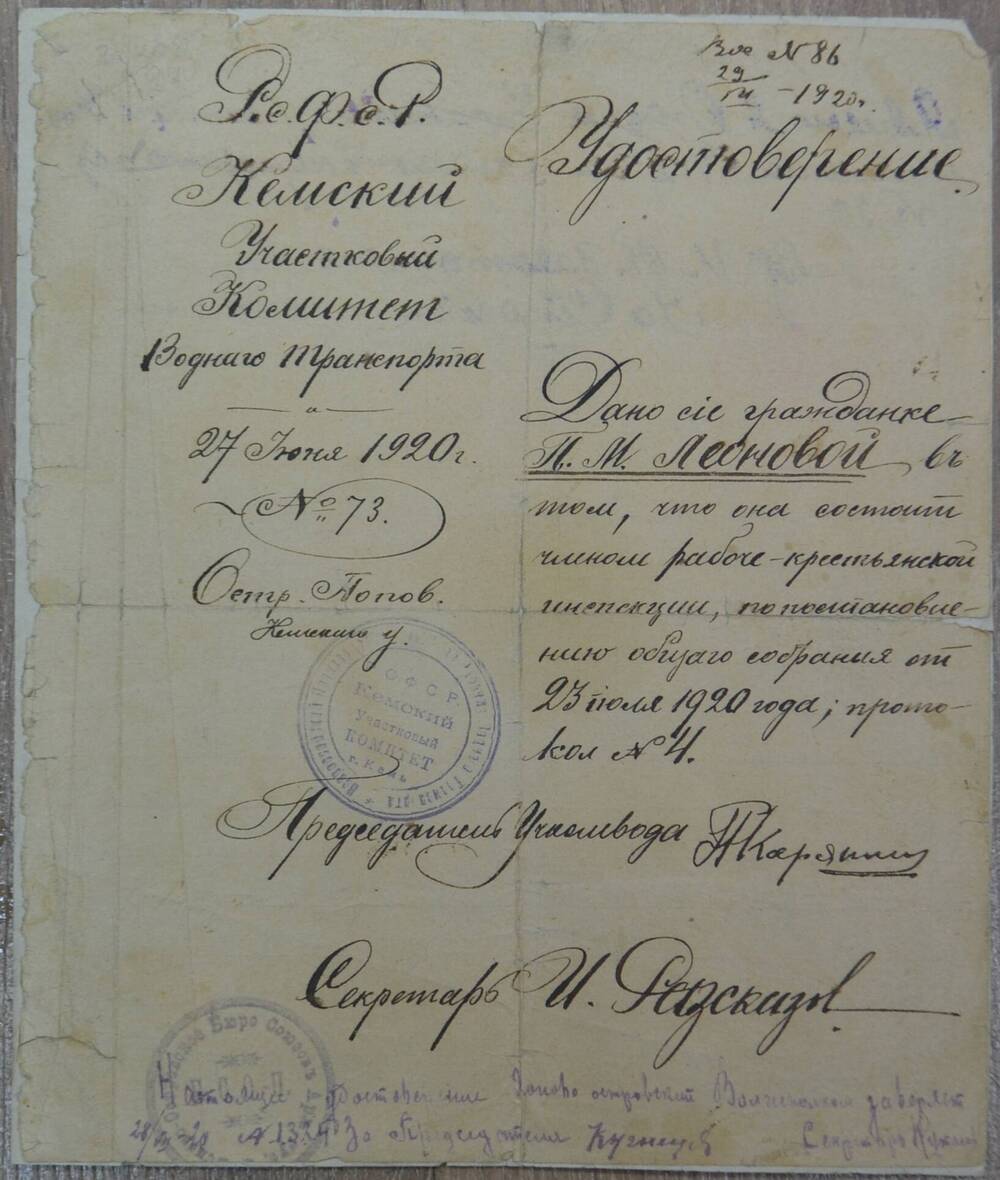 Р.С.Ф.С.Р.
Кемский
Участковый
Комитет
Воднаго Транспорта
27 Июня 1920 г.
№ 73.
Остр. Попов.
Кемскаго у.
№ 86
29
1920 г.
Удостоверение
Дано сіе гражданке
П. М. Леоновой въ
том, что она состоит
членом рабоче-крестьянской
инспекции, по постановле-
нию общаго собрания от
23 июля 1920 года; прото-
кол № 4.
СФСР
Кемский
Участковый
КОМИТЕТ
г. Кемь
Председатель Учкомвода
Секретарь И. Разсказов
Бюро Союзовъ
Настоящее удостоверение Попово островский Волисполком заверяет
28 № 1334 За Председателя Кузнецов Секретарь